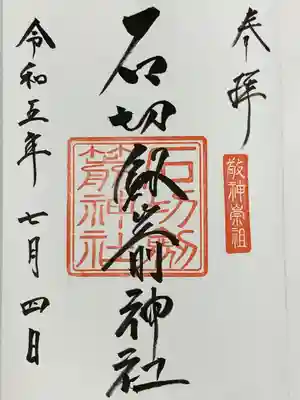 奉拝
敬神崇祖
石切劔箭神社
石切劔
箭神社
令和五年 七月 四日